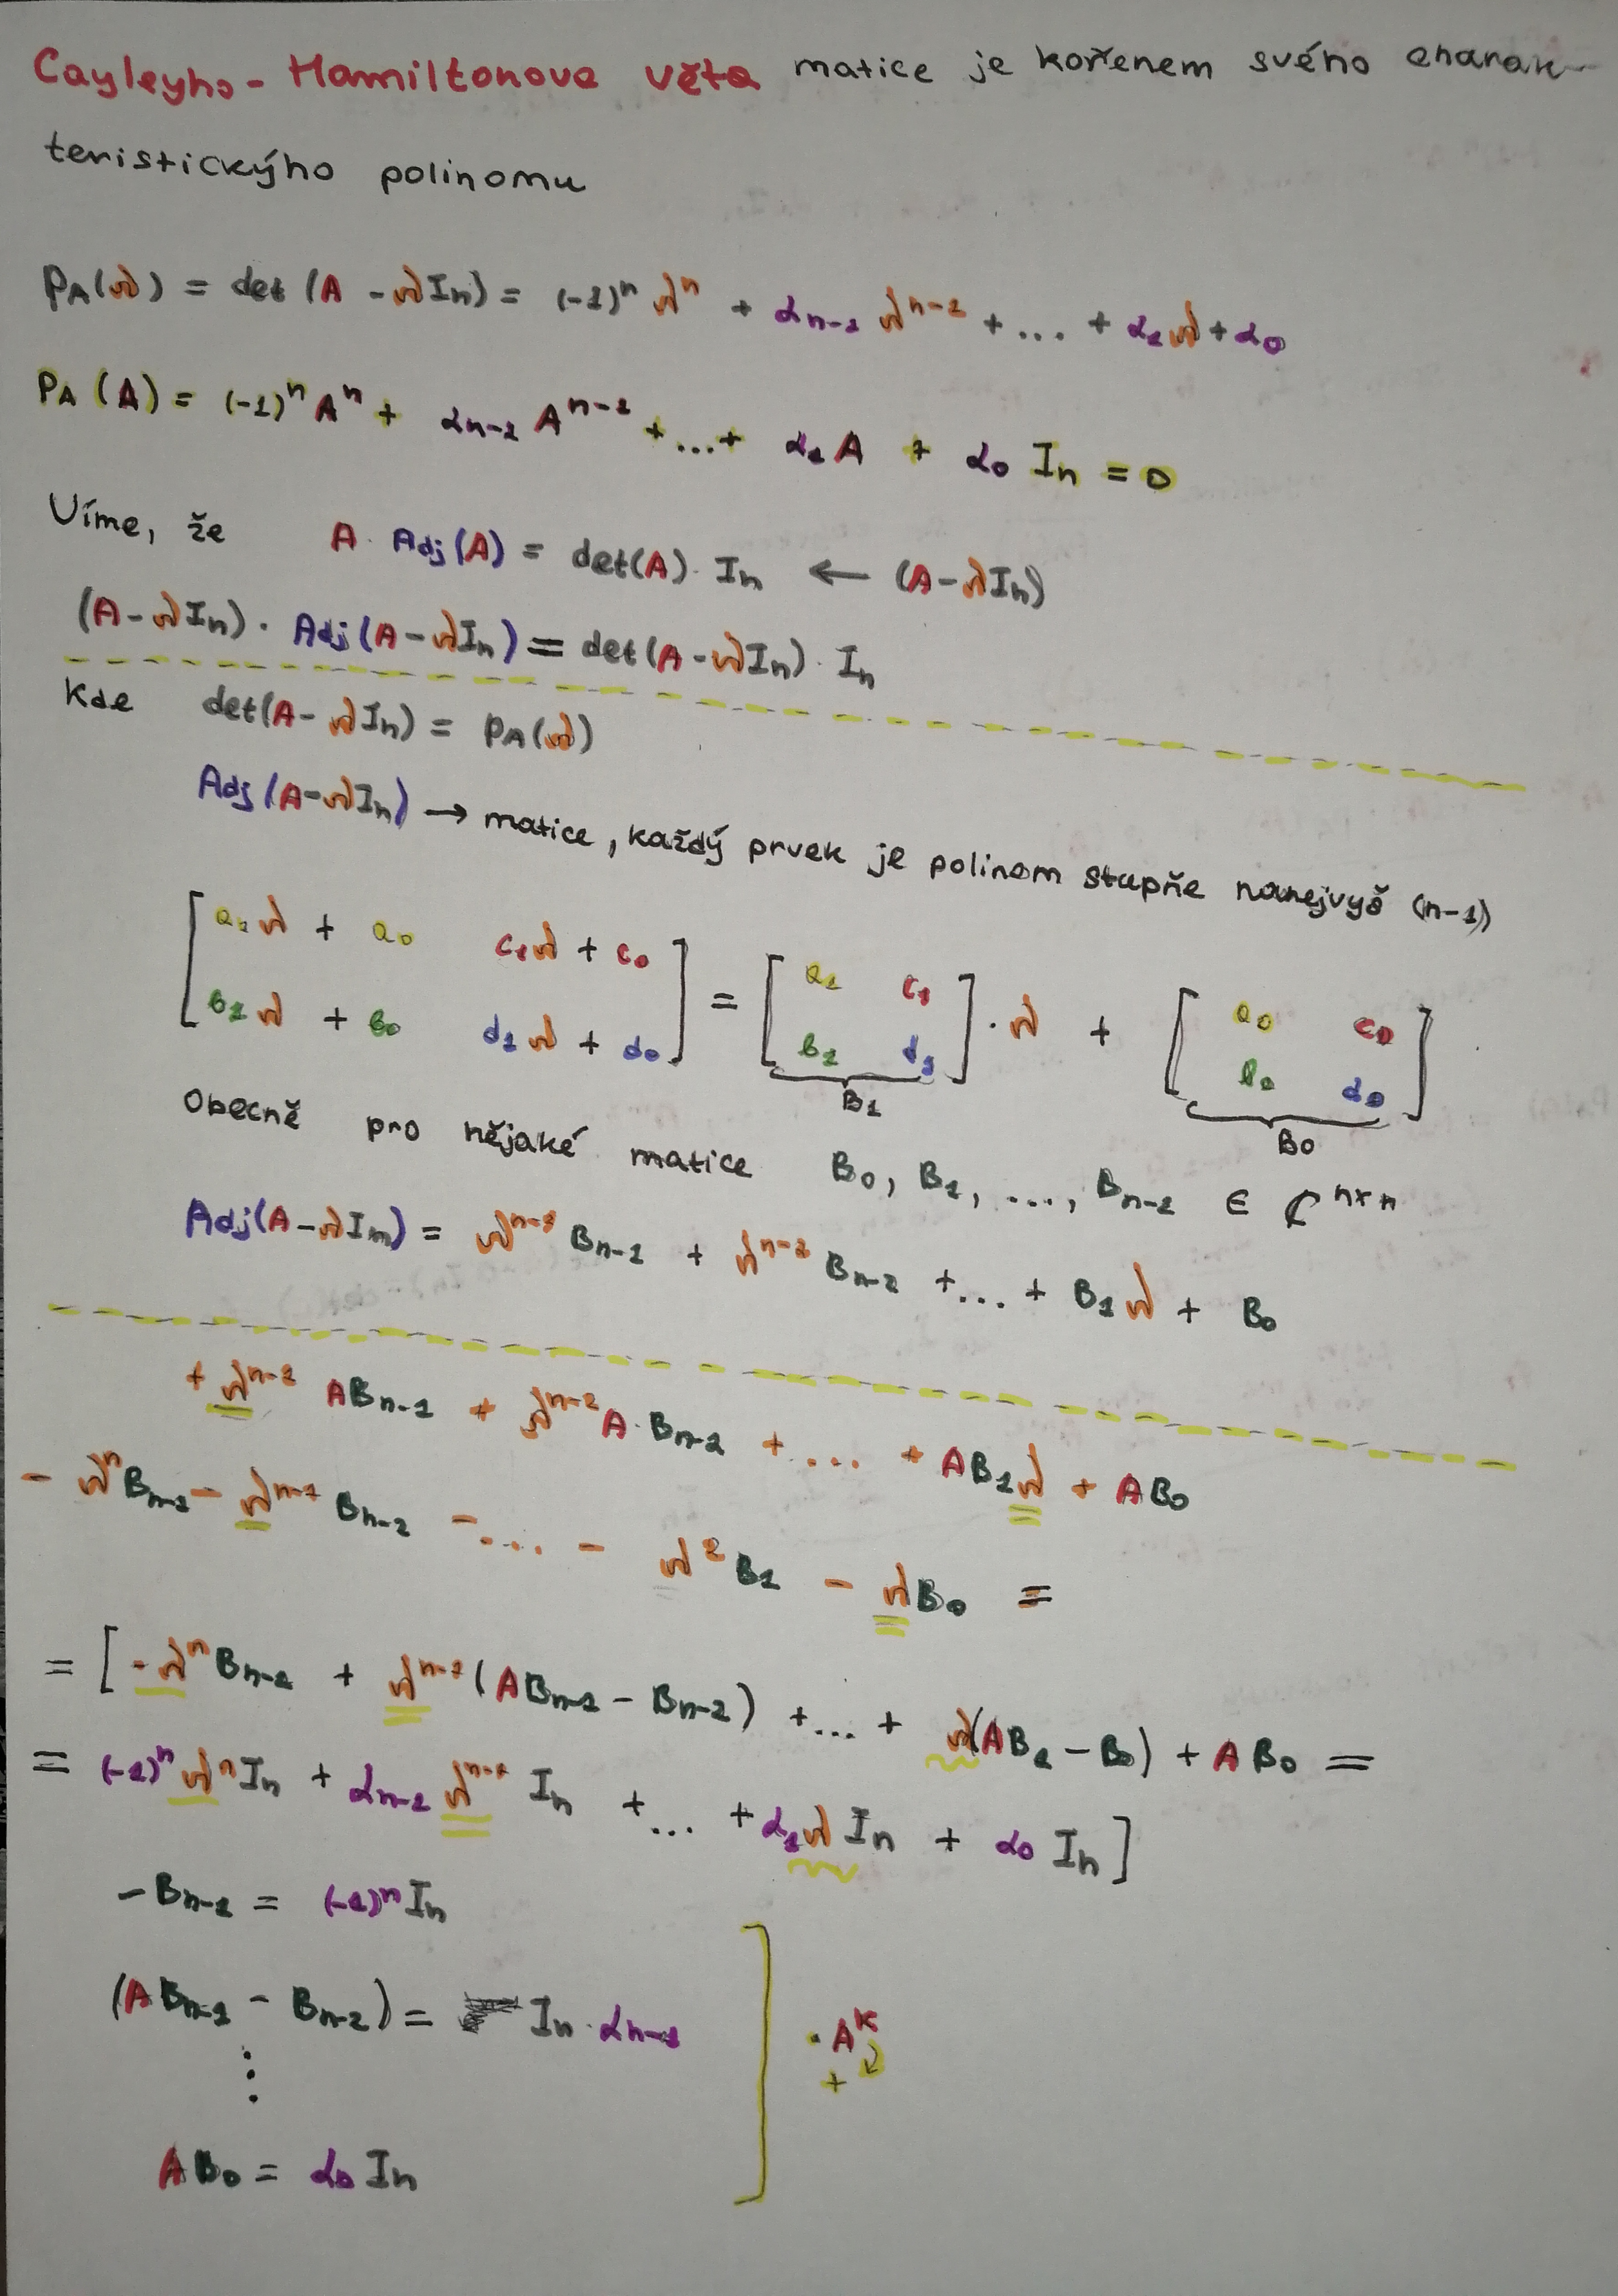 Cayleyho-Hamiltonova věta matice je kořenem svého charak-
teristickýho polinomu
p_A(λ) = det (A - λI_n) = (-1)^n λ^n + α_{n-1} λ^{n-1} + ... + α_1 λ + α_0
p_A (A) = (-1)^n A^n + α_{n-1} A^{n-1} + ... + α_1 A + α_0 I_n = 0
Víme, že A · Adj(A) = det(A) · I_n ← (A - λI_n)
(A - λI_n) · Adj(A - λI_n) = det(A - λI_n) · I_n
Kde det(A - λI_n) = p_A(λ)
Adj(A - λI_n) → matice, každý prvek je polinom stupňe nanejvyš (n-1)
[a_1 λ + a_0 c_1 λ + c_0] = [a_1 c_1] · λ + [a_0 c_0]
[b_1 λ + b_0 d_1 λ + d_0] [b_1 d_1] [b_0 d_0]
B_1 B_0
Obecně pro nějaké matice B_0, B_1, ..., B_{n-1} ∈ ℂ^{n×n}
Adj(A - λI_n) = λ^{n-1} B_{n-1} + λ^{n-2} B_{n-2} + ... + B_1 λ + B_0
+ λ^{n-1} AB_{n-1} + λ^{n-2} A · B_{n-2} + ... + AB_1 λ + AB_0
- λ^n B_{n-1} - λ^{n-1} B_{n-2} - ... - λ^2 B_1 - λB_0 =
= [-λ^n B_{n-1} + λ^{n-1} (AB_{n-1} - B_{n-2}) + ... + λ(AB_1 - B_0) + AB_0 =
= (-1)^n λ^n I_n + α_{n-1} λ^{n-1} I_n + ... + α_1 λ I_n + α_0 I_n]
-B_{n-1} = (-1)^n I_n
(AB_{n-1} - B_{n-2}) = I_n · α_{n-1}
· A^k
+
⋮
AB_0 = α_0 I_n